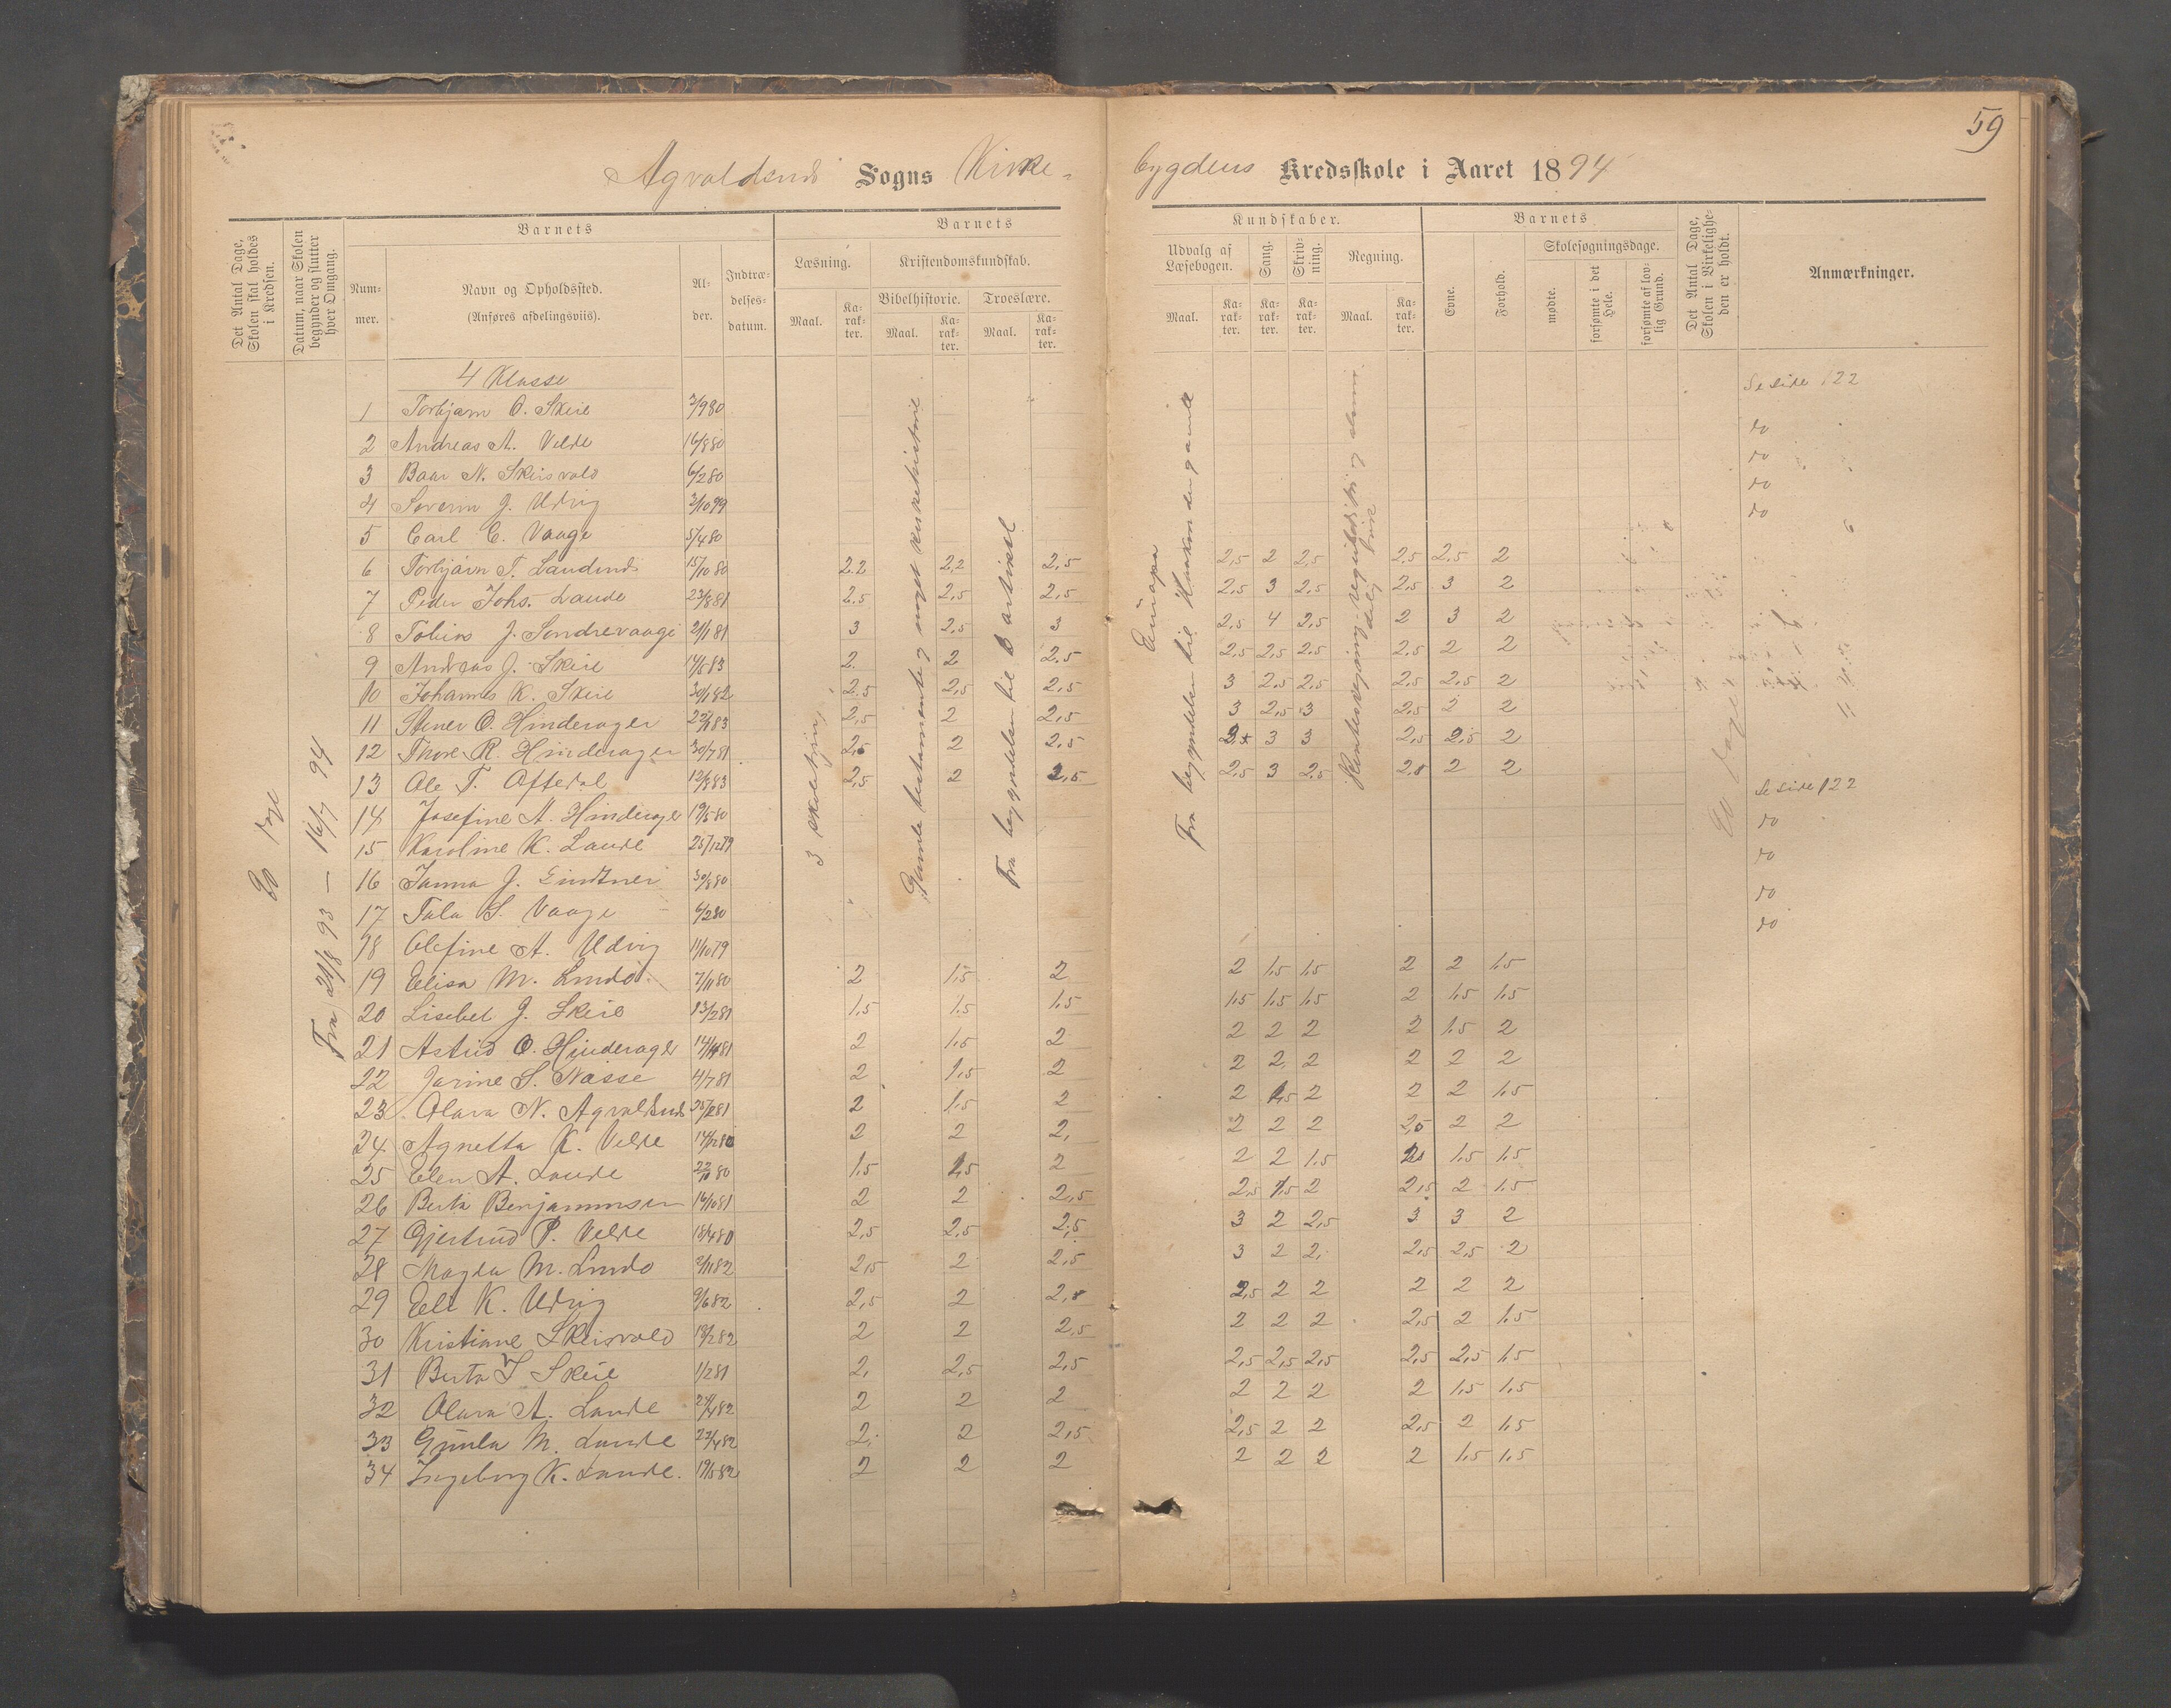 59
Agvaldsnes Sogns Kirke-
bygdens Kredsskole i Aaret 1894
Det Antal Dage, Skolen skal holdes i Kredsen.
Datum, naar Skolen begynder og slutter hver Omgang.
Barnets
Num-mer.
Navn og Opholdssted.
(Anføres afdelingsviis).
Al-der.
Indtræ-delses-datum.
Barnets
Læsning.
Kristendomskundskab.
Bibelhistorie.
Troeslære.
Maal.
Ka-rak-ter.
Maal.
Ka-rak-ter.
Maal.
Ka-rak-ter.
Kundskaber.
Udvalg af Læsebogen.
Sang.
Skriv-ning.
Regning.
Maal.
Ka-rak-ter.
Ka-rak-ter.
Ka-rak-ter.
Maal.
Ka-rak-ter.
Barnets
Evne.
Forhold.
Skolesøgningsdage.
mødte.
forsømte i det Hele.
forsømte af lov-lig Grund.
Det Antal Dage, Skolen i Virkelighe-den er holdt.
Anmærkninger.
Fra 21/8 93 – 16/7 94
3 skoletrin
Fra begyndelsen til 3 artikel
4 Klasse
1 Torbjørn O. Skeie 3/9 80 Se side 122
2 Andreas A. Velde 16/8 80 do
3 Baar N. Skeisvold 6/2 80 do
4 Soverin J. Udvig 3/10 79 do
5 Carl C. Vaage 5/4 80 do
6 Torbjørn T. Landend 15/10 80 2.2 2,2 2,5 2,5 2 2,5 2,5 2,5 2
7 Peder Johs. Lande 23/8 81 2.5 2,5 2,5 2,5 3 2,5 2,5 3 2
8 Tobias J. Søndrevaage 21/1 81 3 2,5 3 2,5 4 2,5 2 3 2
9 Andreas J. Skeie 14/5 83 2. 2 2.5 2,5 2,5 2,5 2,5 2 2
10 Johannes K. Skeie 30/1 82 2.5 2,5 2,5 3 2,5 2,5 2,5 2,5 2
11 Stener O. Hinderager 2,5 2 2,5 3 2,5 3 2,5 2 2
12 Thore R. Hinderager 30/7 81 2,5 2 2.5 3 3 2,5 2,5 2
13 Ole T. Aftedal 12/8 83 2,5 2 2,5 2,5 3 2.5 2.5 2 2
14 Josefine A. Hinderager 19/5 80 Se side 122
15 Karoline K. Lande 25/12 79 do
16 Janna J. Lindtner 30/8 80 do
17 Tala S. Vaage 6/2 80 do
18 Olefine A. Udvig 11/10 79 do
19 Elisa M. Lindø 7/11 80 2 1,5 2 2 1,5 1,5 2 2 1,5
20 Lisebet J. Skeie 13/2 81 1,5 1,5 1,5 1,5 1,5 1,5 2 1,5 1,5
21 Astrid O. Hinderager 2 1,5 2 2 2 2 2 1,5 2
22 Jorine S. Nasse 4/7 81 2 1,5 2 2 2 2 2 2 2
23 Olava N. Agvaldsnes 2 1,5 2 2 1,5 2 2 2 1,5
24 Agnetta K. Velde 2 2 2, 2 2 2 2,5 2 2
25 Elen A. Lande 1,5 1,5 2 2 2 1,5 1,5 1,5
26 Berta Benjaminsen 16/10 81 2 2 2,5 2,5 1,5 2 2,5 2 1,5
27 Gjertrud P. Velde 18/4 80 2,5 2,5 2,5 3 2 2,5 3 3 2
28 Magda M. Lindø 2/11 82 2,5 2 2,5 3 2 2, 2,5 2,5 2
29 Eli K. Udvig 9/6 82 2,5 2 2,5 2,5 2 2 2 2 2
30 Kristiane Skeisvold 18/2 82 2 2 2,5 2 2 2 2,5 2 1,5
31 Berta I Skeie 1/2 81 2, 2,5 2,5 2,5 2,5 2,5 2,5 2,5 1,5
32 Olava A. Lande 24/4 82 2 2 2 2 2 2 2 1,5 1,5
33 Gunla M. Lande 22/4 82 2, 2 2,5 2,5 2 2 2,5 2 1,5
34 Ingeborg K. Lande. 19/5 82 2 2 2 2 2 2 2 1,5 1,5